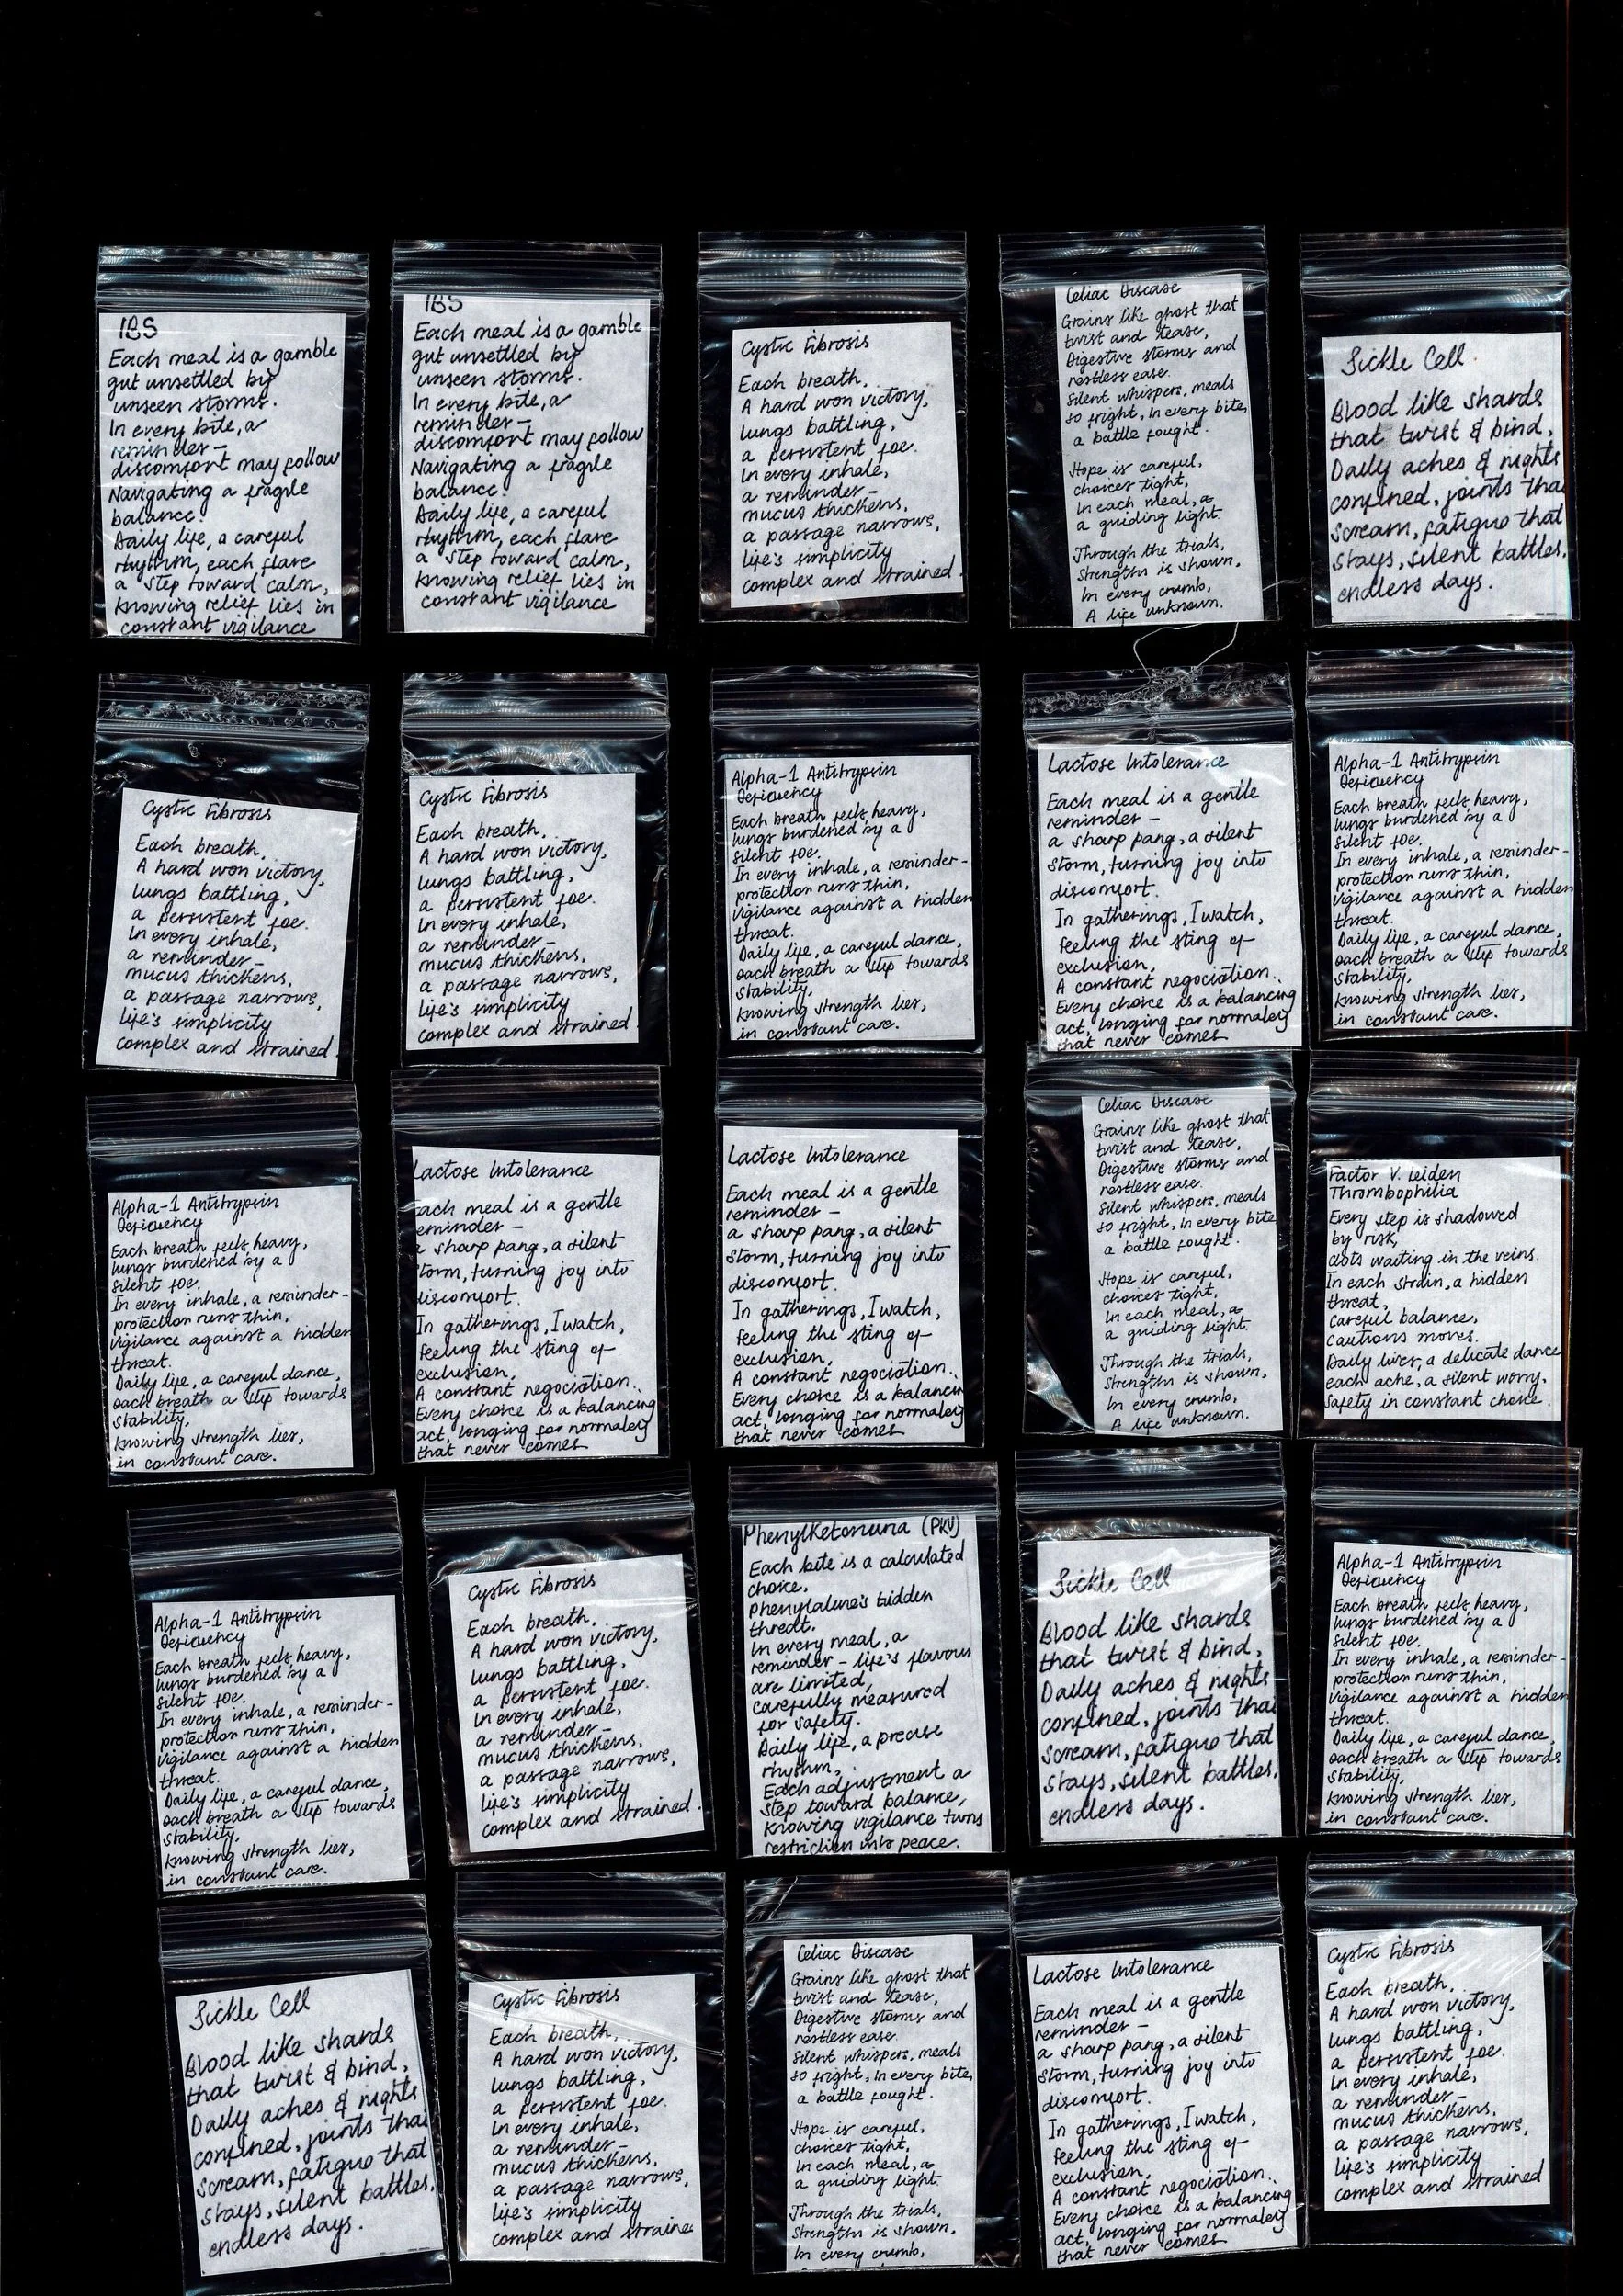 IBS
Each meal is a gamble
gut unsettled by
unseen storms.
In every bite, a
reminder –
discomfort may follow
Navigating a fragile
balance.
Daily life, a careful
rhythm, each flare
a step toward calm,
knowing relief lies in
constant vigilance
IBS
Each meal is a gamble
gut unsettled by
unseen storms.
In every bite, a
reminder –
discomfort may follow
Navigating a fragile
balance.
Daily life, a careful
rhythm, each flare
a step toward calm,
knowing relief lies in
constant vigilance
Cystic Fibrosis
Each breath,
A hard won victory,
lungs battling,
a persistent foe.
In every inhale,
a reminder –
mucus thickens,
a passage narrows,
life's simplicity
complex and strained.
Celiac Disease
Grains like ghost that
twist and tease,
Digestive storms and
restless ease.
Silent whispers, meals
so fright, In every bite,
a battle fought.
Hope is careful,
choices tight,
In each meal, a
a guiding light.
Through the trials,
Strengths is shown,
In every crumb,
A life unknown.
Sickle Cell
Blood like shards
that twist & bind,
Daily aches & nights
confined, joints that
scream, fatigue that
stays, silent battles,
endless days.
Cystic Fibrosis
Each breath,
A hard won victory,
lungs battling,
a persistent foe.
In every inhale,
a reminder –
mucus thickens,
a passage narrows,
life's simplicity
complex and strained.
Cystic Fibrosis
Each breath,
A hard won victory,
lungs battling,
a persistent foe.
In every inhale,
a reminder –
mucus thickens,
a passage narrows,
life's simplicity
complex and strained.
Alpha-1 Antitrypsin
Deficiency
Each breath feels heavy,
lungs burdened by a
silent foe.
In every inhale, a reminder –
protection runs thin,
vigilance against a hidden
threat.
Daily life, a careful dance,
each breath a step towards
stability,
knowing strength lies,
in constant care.
Lactose Intolerance
Each meal is a gentle
reminder –
a sharp pang, a silent
storm, turning joy into
discomfort.
In gatherings, I watch,
feeling the sting of
exclusion,
A constant negociation..
Every choice is a balancing
act, longing for normalcy
that never comes
Alpha-1 Antitrypsin
Deficiency
Each breath feels heavy,
lungs burdened by a
silent foe.
In every inhale, a reminder –
protection runs thin,
vigilance against a hidden
threat.
Daily life, a careful dance,
each breath a step towards
stability,
knowing strength lies,
in constant care.
Alpha-1 Antitrypsin
Deficiency
Each breath feels heavy,
lungs burdened by a
silent foe.
In every inhale, a reminder –
protection runs thin,
vigilance against a hidden
threat.
Daily life, a careful dance,
each breath a step towards
stability,
knowing strength lies,
in constant care.
Lactose Intolerance
each meal is a gentle
eminder –
a sharp pang, a silent
torm, turning joy into
discomfort.
In gatherings, I watch,
feeling the sting of
exclusion,
A constant negociation..
Every choice is a balancing
act, longing for normalcy
that never comes
Lactose Intolerance
Each meal is a gentle
reminder –
a sharp pang, a silent
storm, turning joy into
discomfort.
In gatherings, I watch,
feeling the sting of
exclusion,
A constant negociation..
Every choice is a balancin
act, longing for normalcy
that never comes
Celiac Disease
Grains like ghost that
twist and tease,
Digestive storms and
restless ease.
Silent whispers, meals
so fright, In every bite
a battle fought.
Hope is careful,
choices tight,
In each meal, a
a guiding light.
Through the trials,
Strengths is shown,
In every crumb,
A life unknown.
Factor V. Leiden
Thrombophilia
Every step is shadowed
by risk,
clots waiting in the veins.
In each strain, a hidden
threat,
careful balance,
cautions moves.
Daily lives, a delicate dance
each ache, a silent worry.
Safety in constant choice.
Alpha-1 Antitrypsin
Deficiency
Each breath feels heavy,
lungs burdened by a
silent foe.
In every inhale, a reminder –
protection runs thin,
vigilance against a hidden
threat.
Daily life, a careful dance,
each breath a step towards
stability,
knowing strength lies,
in constant care.
Cystic Fibrosis
Each breath,
A hard won victory,
lungs battling,
a persistent foe.
In every inhale,
a reminder –
mucus thickens,
a passage narrows,
life's simplicity
complex and strained.
Phenylketonuria (PKU)
Each bite is a calculated
choice,
phenylaline's hidden
threat.
In every meal, a
reminder – life's flavours
are limited,
carefully measured
for safety.
Daily life, a precise
rhythm,
Each adjustment a
step toward balance,
knowing vigilance turns
restriction into peace.
Sickle Cell
Blood like shards
that twist & bind,
Daily aches & nights
confined, joints that
scream, fatigue that
stays, silent battles,
endless days.
Alpha-1 Antitrypsin
Deficiency
Each breath feels heavy,
lungs burdened by a
silent foe.
In every inhale, a reminder –
protection runs thin,
vigilance against a hidden
threat.
Daily life, a careful dance,
each breath a step towards
stability,
knowing strength lies,
in constant care.
Sickle Cell
Blood like shards
that twist & bind,
Daily aches & nights
confined, joints that
scream, fatigue that
stays, silent battles,
endless days.
Cystic Fibrosis
Each breath,
A hard won victory,
lungs battling,
a persistent foe.
In every inhale,
a reminder –
mucus thickens,
a passage narrows,
life's simplicity
complex and straine
Celiac Disease
Grains like ghost that
twist and tease,
Digestive storms and
restless ease.
Silent whispers, meals
so fright, In every bite,
a battle fought.
Hope is careful,
choices tight,
In each meal, a
a guiding light.
Through the trials,
Strengths is shown,
In every crumb,
Lactose Intolerance
Each meal is a gentle
reminder –
a sharp pang, a silent
storm, turning joy into
discomfort.
In gatherings, I watch,
feeling the sting of
exclusion,
A constant negociation..
Every choice is a balancing
act, longing for normalcy
that never comes
Cystic Fibrosis
Each breath,
A hard won victory,
lungs battling,
a persistent foe.
In every inhale,
a reminder –
mucus thickens,
a passage narrows,
life's simplicity
complex and strained